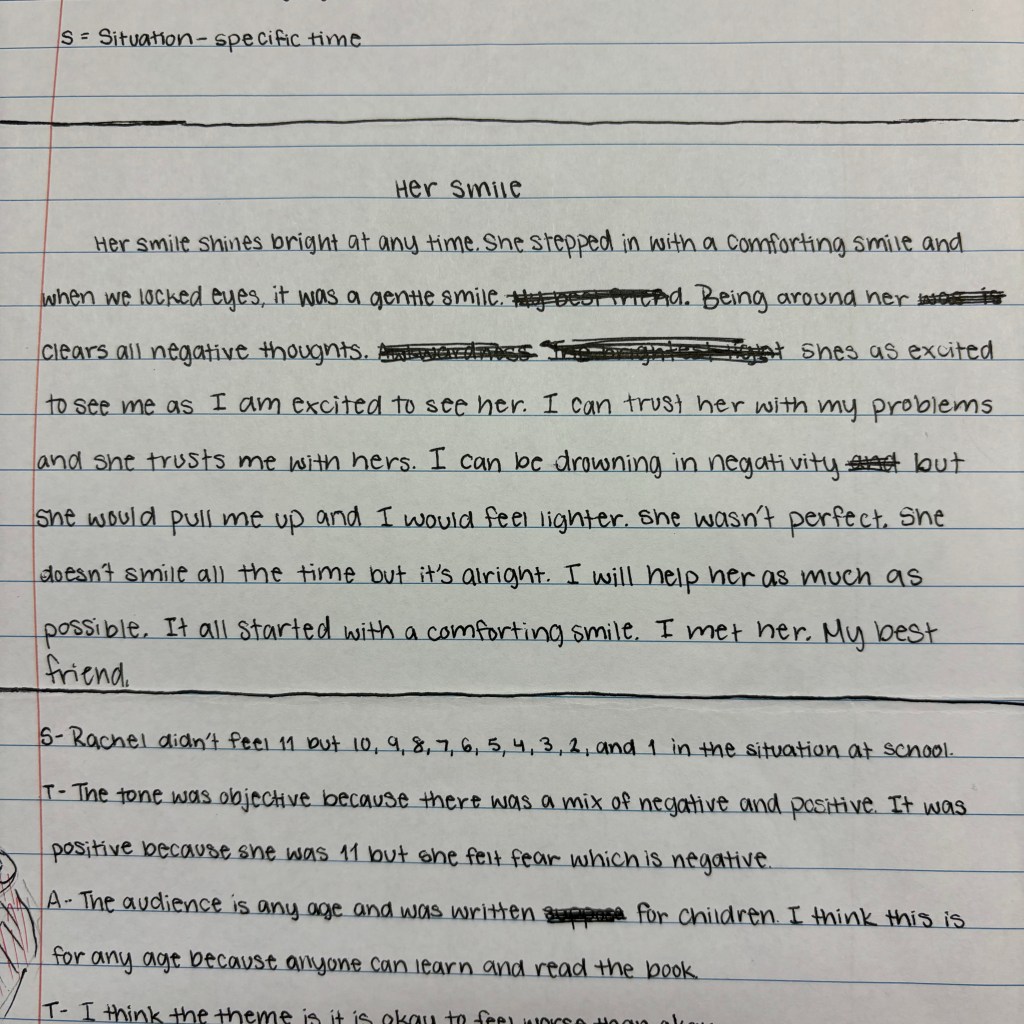 S = Situation - specific time
Her Smile
Her smile shines bright at any time. She stepped in with a comforting smile and
when we locked eyes, it was a gentle smile. My best friend. Being around her was is
clears all negative thoughts. Awkwardness The brightest light shes as excited
to see me as I am excited to see her. I can trust her with my problems
and she trusts me with hers. I can be drowning in negativity and but
she would pull me up and I would feel lighter. She wasn't perfect. She
doesn't smile all the time but it's alright. I will help her as much as
possible. It all started with a comforting smile. I met her. My best
friend.
S- Rachel didn't feel 11 but 10, 9, 8, 7, 6, 5, 4, 3, 2, and 1 in the situation at school.
T- The tone was objective because there was a mix of negative and positive. It was
positive because she was 11 but she felt fear which is negative.
A- The audience is any age and was written suppose for children. I think this is
for any age because anyone can learn and read the book
T- I think the theme is it is okay to feel worse than okay